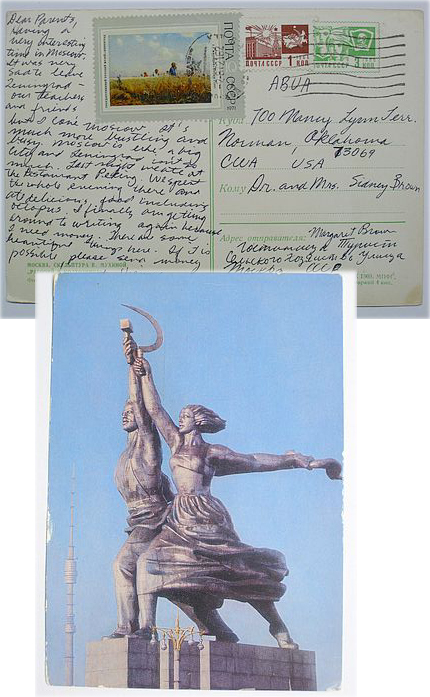 Dear Parents,
Having a
very interesting
time in Moscow.
It was very
sad to leave
Leningrad -
our teachers
and friends
but I love Moscow. It's
much more bustling and
busy. Moscow is like a big
city and Leningrad isn't so
much. Last night we ate at
the Restaurant Peking. We spent
the whole evening there and
ate delicious food including
octopus. I finally am getting
around to writing again because
I need money. There are some
beautiful things here. If it is
possible please send money
МОСКВА. СКУЛЬПТУРА В. МУХИНОЙ
ПОЧТА СССР
ПОЧТА СССР 1 КОП
ПОЧТА СССР 3 КОП
АВИА
Куда
700 Nancy Lynn Terr.
Norman, Oklahoma
73069
США USA
Кому Dr. and Mrs. Sidney Brown
Адрес отправителя: Margaret Brown
Гостиница Турист
Сельского Хозяйства Улица
Москва СССР